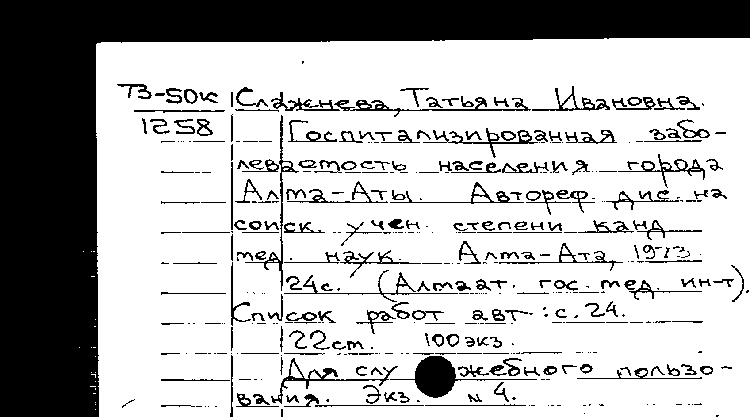 ТЗ-50к Слажнева, Татьяна Ивановна.
1258 Госпитализированная забо-
леваемость населения города
Алма-Аты. Автореф. дис. на
соиск. учен. степени канд
мед. наук. Алма-Ата, 1973
24с. (Алмаат. гос. мед. ин-т).
Список работ авт.: с. 24.
22см. 100экз.
Для служебного пользо-
вания. Экз. №4.